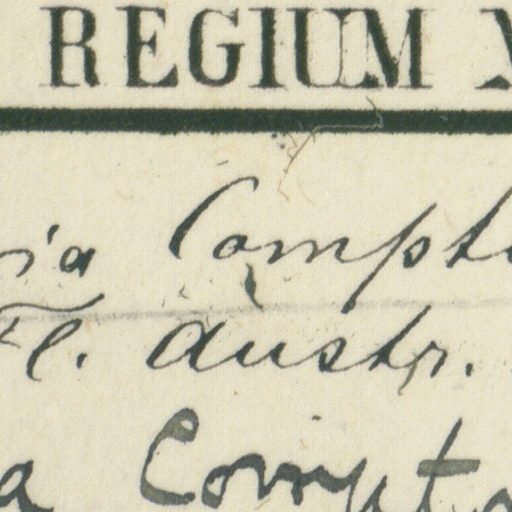 REGIUM
ia Compt
Fl. Austr.
a Compt